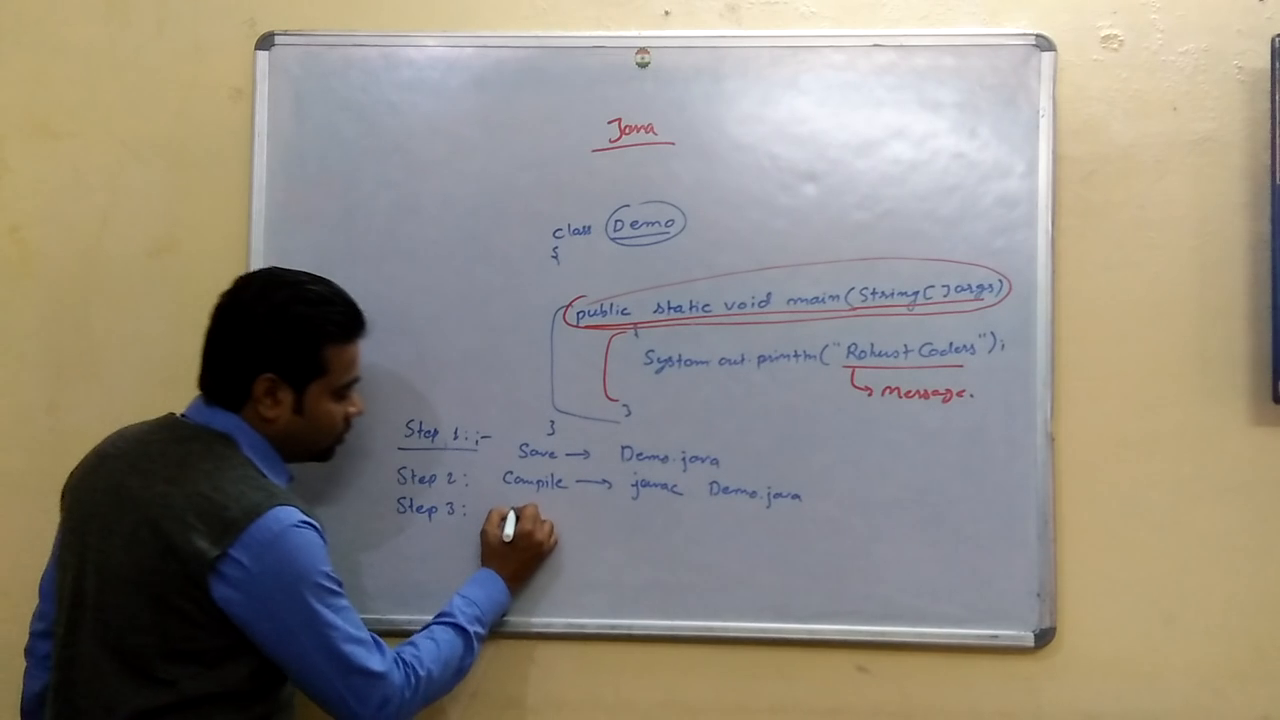 Java
class Demo
{
public static void main(String[]args)
{
System.out.println("Robust Coders");
Message.
}
}
Step 1:;-
Save → Demo.java
Step 2: Compile → javac Demo.java
Step 3: